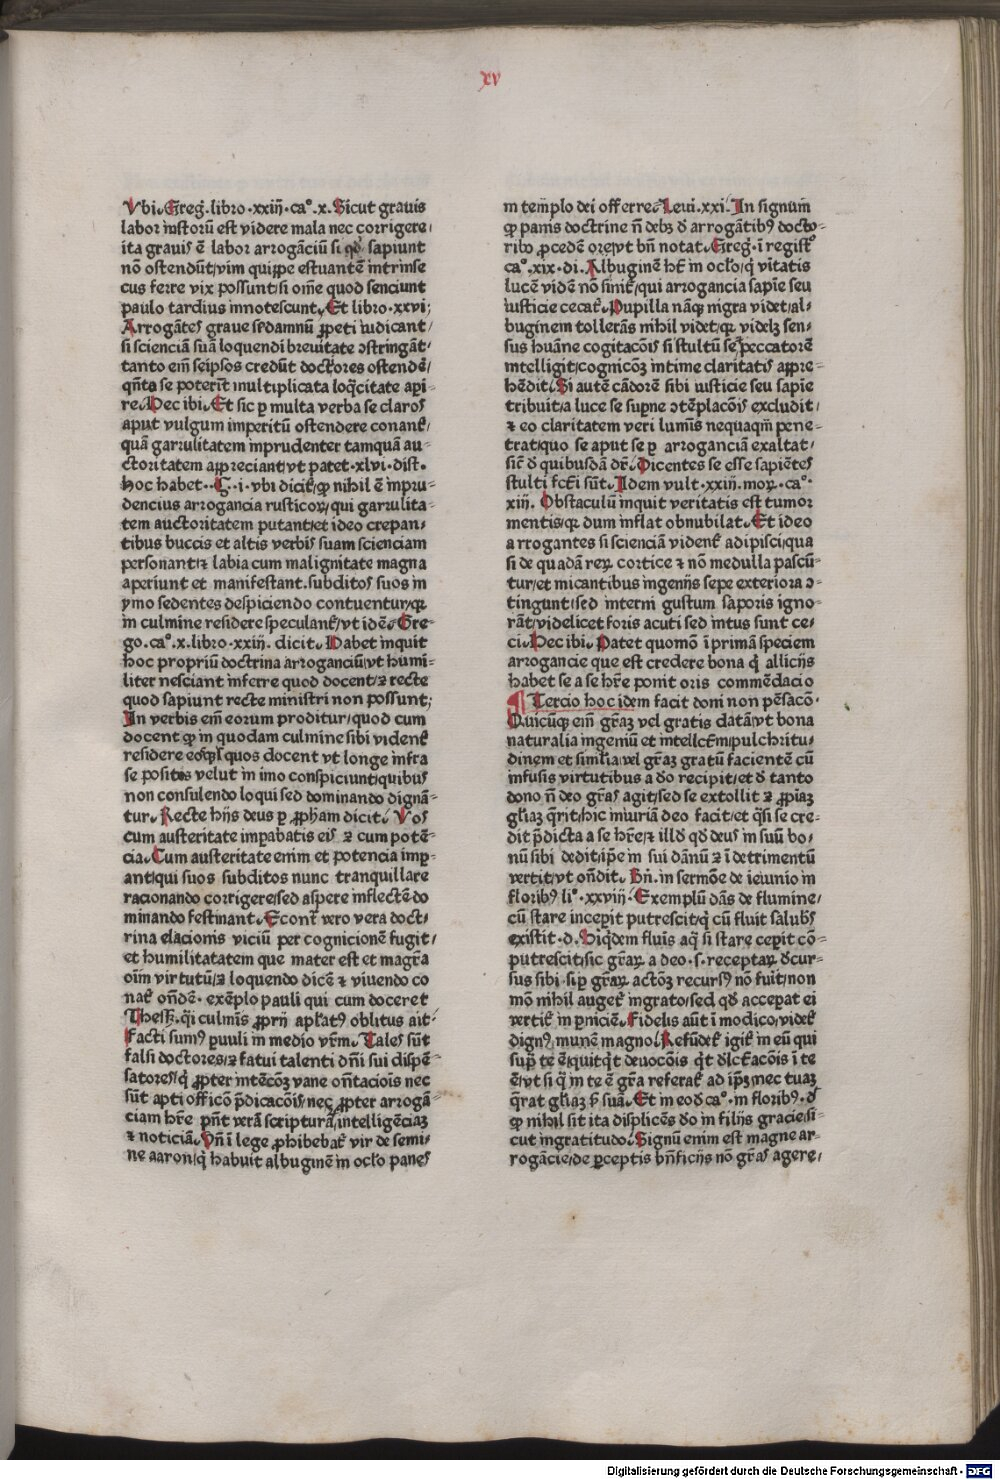 xv
Vbi. Greg̃. libro .xxiiĩ. caº. x. Sicut grauis
labor iustorũ est videre mala nec corrigere/
ita grauis ẽ labor arrogãciũ si qd̾ sapiunt
nõ ostendũt/vim quippe estuantẽ intrinse
cus ferre vix possunt/si oĩne quod senciunt
paulo tardius innotescunt. Et libro .xxvi;
Arrogãtes graue se damnũ ꝓpeti iudicant/
si scienciã suã loquendi breuitate ɔstringãt/
tanto em̃ seipsos credũt doctores ostendẽ/
qñto se poterĩt multiplicata loq̃citate apĩ-
re. Hec ibi. Et sic ꝑ multa verba se claros
aput vulgum imperitũ ostendere conant̃/
quã garrulitatem inprudenter tamquã au-
ctoritatem appreciant/vt patet .xlvi. dist.
hoc habet. G. i. vbi dicit̃/ꝙ nihil ẽ inpru-
dencius arrogancia rusticoꝝ/qui garrulita-
tem auctoritatem putant/et ideo crepan/
tibus buccis et altis verbis suam scienciam
personant/ꝛ labia cum malignitate magna
aperiunt et manifestant. subditos suos in
ymo sedentes despiciendo contuentur/qꝛ
in culmine residere speculant̃/vt idẽ Gre-
go. caº. x. libro .xxiiĩ. dicit. Habet inquit
hoc propriũ doctrina arroganciũ/vt humi-
liter nesciant inferre quod docent/ꝛ recte
quod sapiunt recte ministri non possunt;
In verbis em̃ eorum proditur/quod cum
docent ꝙ in quodam culmine sibi vident̃
residere eosq̃ quos docent vt longe infra
se positos velut in imo conspiciunt/quibus
non consulendo loqui sed dominando dignã-
tur. Recte hijs deus ꝑ ꝓpham dicit. Vos
cum austeritate imꝑabatis eis ꝛ cum potẽ-
cia. Cum austeritate enim et potencia imꝑ-
ant/qui suos subditos nunc tranquillare
racionando corrigere/sed aspere inflectẽdo
minando festinant. Econt̃ vero vera doct/
rina elacionis viciũ per cognicionẽ fugit/
et humilitatatem que mater est et magr̃a
oĩm virtutũ/ꝛ loquendo dicẽ ꝛ viuendo co
nat̃ oñdẽ. exẽplo pauli qui cum doceret
Thess. q̃i culmĩs ꝓprij apl̃atꝰ oblitus ait
Facti sumꝰ ꝑuuli in medio vr̃m. Tales sũt
falsi doctores/ꝛ fatui talenti dñi sui dispẽ-
satores/q̃ ꝓpter intẽcõꝫ vane oñtaciois nec
sũt apti officõ p̃dicacõis/nec ꝓpter arrogã
ciam hr̃e pñt verã scripturã intelligẽciaꝫ
ꝛ noticiã. Vñ ĩ lege ꝓhibebat̃ vir de semi/
ne aaron/q̃ habuit albuginẽ in ocl̃o panes
m templo dei offerre. Leui .xxi. In signum
ꝙ panis doctrine ñ debꝫ ð arrogãtibꝰ docto-
ribꝫ ꝓcedẽ ore/vt bñ notat. Greg̃. ĩ regist̃
caº. xix. di. Albuginẽ hẽt in ocl̃o/q̃ vĩtatis
lucẽ vidẽ nõ sinit̃/qui arrogancia sapiẽ seu
iusticie cecat̃. Pupilla nãq̃ nigra videt/al-
buginem tollerãs nihil videt/qꝛ videlꝫ sen-
sus huãne cogitacõis si stultũ se ꝯ peccatorẽ
intelligit/cognicõꝫ intime claritatis appre-
hẽdit. Si autẽ cãdorẽ sibi iusticie seu sapiẽ
tribuit/a luce se suꝑne ɔtẽplacõis excludit/
ꝛ eo claritatem veri lumĩs nequaqm̃ pene-
trat/quo se aput se ꝑ arroganciã exaltat/
sic̃ ð quibusdã dr̃. Dicentes se esse sapiẽtes
stulti fcĩ sũt. Idem vult .xxiiĩ. moꝝ. ca.
xiĩ. Obstaculũ inquit veritatis est tumor
mentis/qꝛ dum inflat obnubilat. Et ideo
arrogantes si scienciã vident̃ adipisci/qua
si de quadã reꝝ cortice ꝛ nõ medulla pascũ-
tur/et micantibus ingenijs sepe exteriora ɔ-
tingunt/sed interni gustum saporis igno-
rãt/videlicet foris acuti sed intus sunt ce/
ci. Hec ibi. Patet quomõ ĩ primã speciem
arrogancie que est credere bona q̃ allicijs
habet se a se hr̃e ponit oris commẽdacio
¶ Tercio hoc idem facit doni non pẽsacõ.
Quicũq̃ em̃ gr̃aꝫ vel gratis datã/vt bona
naturalia ingeniũ et intellc̃m/pulchritu/
dinem et similia/vel gr̃aꝫ gratũ facientẽ cũ
infusis virtutibus a ðo recipit/et ð tanto
dono ñ deo gr̃as agit/sed se extollit ꝛ ꝓpiaꝫ
gl̃iaꝫ q̃rit/hic iniuriã deo facit/et q̃si se cre-
dit p̃dicta a se hr̃e/ꝛ illð qð deus in suũ bo/
nũ sibi dedit/ip̃e in sui dãnũ ꝛ ĩ detrimentũ
vertit/vt oñdit. Bñ. in sermõe de ieiunio in
floribꝰ liº. xxviiĩ. Exemplũ dãs de flumine/
cũ stare incepit putrescit/q̃ cũ fluit salubꝭ
existit. d. Siq̃dem fluũs aq̃ si stare ceꝑit cõ-
putrescit/sic gr̃aꝝ a deo. s. receptaꝝ ðcur-
sus sibi. sip̃ gr̃aꝝ actõꝫ recursꝰ nõ fuit/non
mõ nihil auget̃ ingrato/sed qð acceꝑat ei
vertit̃ in ꝑniciẽ. Fidelis aũt ĩ modico/videt̃
dignꝰ munẽ magno. Refũdet̃ igit̃ in eũ qui
suꝑ te ẽ quitq̃t deuocõis q̃t ðlcĩacõis ĩ te
ẽ/vt si q̃ in te ẽ gr̃a referat̃ ad ip̃ꝫ/nec tuaꝫ
q̃rat gl̃iaꝫ ꝫ suã. Et in eoð caº. in floribꝰ. ð
ꝙ nihil sit ita displicẽs ðo in filijs gracie/si-
cut ingratitudo. Signũ enim est magne ar-
rogãcie/de ꝑceptis bñficijs nõ gr̃as agere/
Digitalisierung gefördert durch die Deutsche Forschungsgemeinschaft - DFG